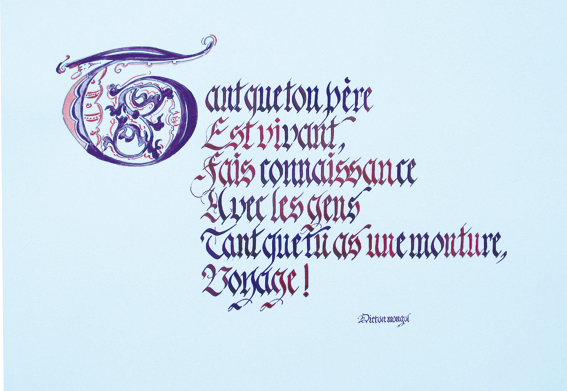 Tant que ton père
Est vivant,
Fais connaissance
Avec les gens
Tant que tu as une monture,
Voyage !
Dicton mongol